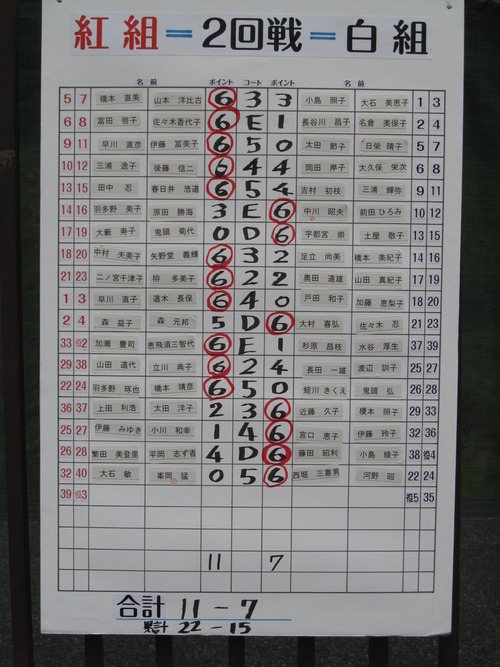 紅組＝2回戦＝白組
名前 ポイント コート ポイント 名前
5 7 橋本 直美 山本 洋比古 6 3 3 小島 照子 大石 美恵子 1 3
6 8 富田 啓子 佐々木香代子 6 E 1 長谷川 昌子 名倉 美保子 2 4
9 11 早川 直彦 伊藤 富美子 6 5 0 太田 節子 日榮 晴子 5 7
10 12 三浦 逸子 後藤 信二 6 4 4 岡田 岸子 大久保 栄次 6 8
13 15 田中 忍 春日井 浩道 6 5 4 吉村 初枝 三浦 輝弥 9 11
14 16 羽多野 美子 原田 勝海 3 E 6 中川 昭夫 前田 ひろみ 10 12
17 19 大藪 寿子 鬼頭 菊代 0 D 6 宇都宮 崇 土屋 敬子 13 15
18 20 中村 夫美子 矢野堂 義輝 6 3 2 足立 尚美 橋本 美紀子 14 16
21 23 二ノ宮千津子 祷 多美子 6 2 2 奥田 道雄 山田 真紀子 17 19
1 3 早川 直子 道木 長保 6 4 0 戸田 和子 加藤 恵梨子 18 20
2 4 森 益子 森 元邦 5 D 6 大村 喜弘 佐々木 忍 21 23
33 役2 加瀬 豊司 恵飛須三智代 6 E 1 杉原 昌枝 水谷 厚生 37 39
29 38 山田 道代 立川 典子 6 2 4 長田 一雄 渡辺 訓子 25 27
22 24 羽多野 琢也 橋本 靖彦 6 5 0 蛭川 きくえ 鬼頭 弘 26 28
36 37 上田 利浩 太田 洋子 2 3 6 近藤 久子 榎本 照子 29 33
25 27 伊藤 みゆき 小川 和幸 1 4 6 宮口 恵子 伊藤 玲子 32 36
26 28 繁田 美登里 平岡 志ず香 4 D 6 藤田 昭利 小島 綾子 38 役4
32 40 大石 敏 峯岡 猛 0 5 6 西堀 三喜男 河野 昭 22 24
39 役3 役5 35
11 7
合計 11-7
累計 22-15